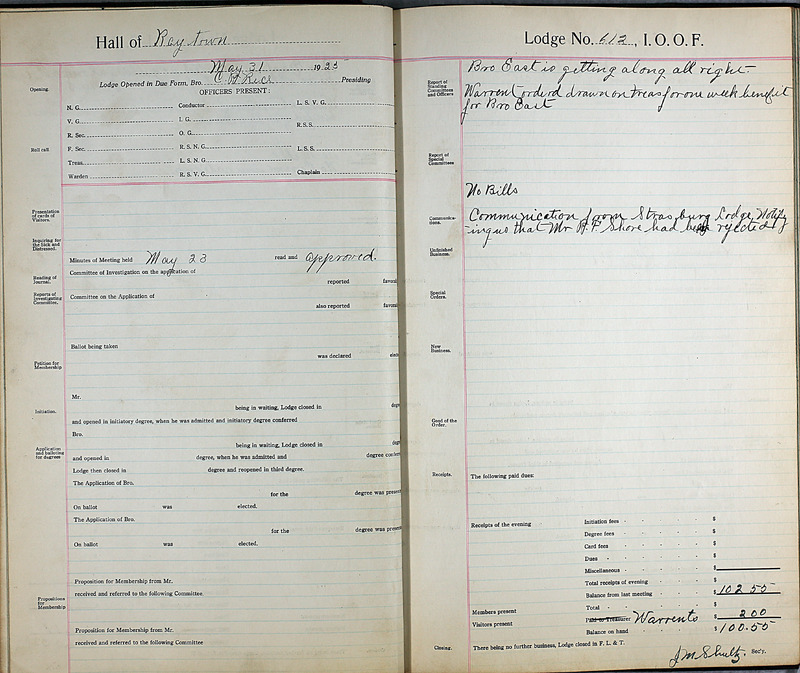 Hall of Ray town
May 31 1923
Lodge Opened in Due Form, Bro. C A Rice Presiding
OFFICERS PRESENT:
Opening.
N. G. Conductor L. S. V. G.
V. G. I. G. R.S.S.
R. Sec. O. G.
Roll call.
F. Sec. R. S. N. G. L. S. S.
Treas. L. S. N. G.
Warden R. S. V. G. Chaplain
Presentation of cards of Visitors.
Inquiring for the Sick and Distressed.
Minutes of Meeting held May 23 read and approved.
Reading of Journal.
Committee of Investigation on the application of
reported favora
Reports of Investigating Committee.
Committee on the Application of
also reported favora
Ballot being taken
was declared
Petition for Membership
Mr.
being in waiting, Lodge closed in degr
Initiation.
and opened in initiatory degree, when he was admitted and initiatory degree conferred
Bro.
being in waiting, Lodge closed in degr
Application and balloting for degrees
and opened in degree, when he was admitted and degree confer
Lodge then closed in degree and reopened in third degree.
The Application of Bro.
for the degree was presen
On ballot was elected.
The Application of Bro.
for the degree was presen
On ballot was elected.
Proposition for Membership from Mr.
received and referred to the following Committee
Propositions for Membership
Proposition for Membership from Mr.
received and referred to the following Committee
Lodge No. 612, I. O. O. F.
Bro East is getting along all right.
Report of Standing Committees and Officers
Warrent orderd drawn on treas for one week benefit
for Bro East
Report of Special Committees
No Bills
Communications.
Communication from Strasburg Lodge, Notify
-ing us that Mr A F Shore had been rejected
Unfinished Business.
Special Orders.
New Business.
Good of the Order.
Receipts.
The following paid dues:
Receipts of the evening
Initiation fees $
Degree fees $
Card fees $
Dues $
Miscellaneous $
Total receipts of evening $
Balance from last meeting $ 102 55
Members present Total $
Visitors present Paid to Treasurer Warrents $ 2 00
Balance on hand $ 100.55
Closing.
There being no further business, Lodge closed in F. L. & T.
J M Shultz. Sec'y.